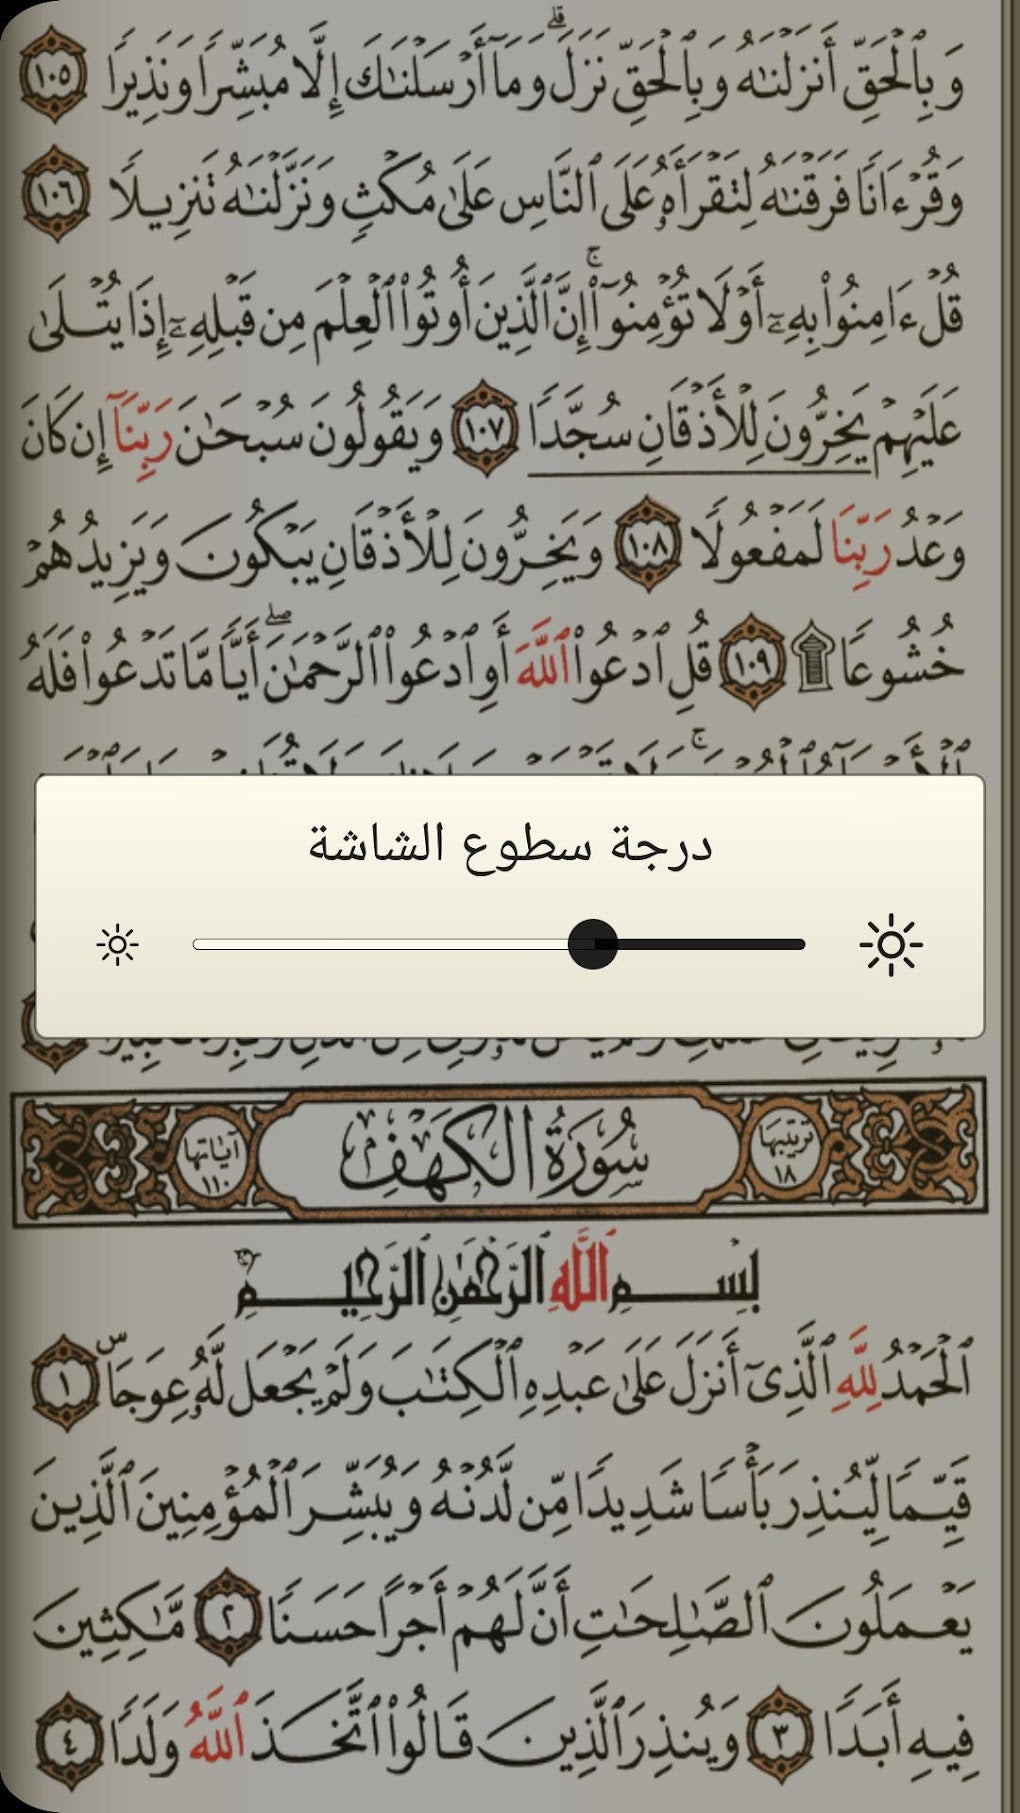 وَبِٱلۡحَقِّ أَنزَلۡنَٰهُ وَبِٱلۡحَقِّ نَزَلَۗ وَمَآ أَرۡسَلۡنَٰكَ إِلَّا مُبَشِّرٗا وَنَذِيرٗا ١٠٥
وَقُرۡءَانٗا فَرَقۡنَٰهُ لِتَقۡرَأَهُۥ عَلَى ٱلنَّاسِ عَلَىٰ مُكۡثٖ وَنَزَّلۡنَٰهُ تَنزِيلٗا ١٠٦
قُلۡ ءَامِنُواْ بِهِۦٓ أَوۡ لَا تُؤۡمِنُوٓاْۚ إِنَّ ٱلَّذِينَ أُوتُواْ ٱلۡعِلۡمَ مِن قَبۡلِهِۦٓ إِذَا يُتۡلَىٰ
عَلَيۡهِمۡ يَخِرُّونَۤ لِلۡأَذۡقَانِۤ سُجَّدٗاۤ ١٠٧ وَيَقُولُونَ سُبۡحَٰنَ رَبِّنَآ إِن كَانَ
وَعۡدُ رَبِّنَا لَمَفۡعُولٗا ١٠٨ وَيَخِرُّونَ لِلۡأَذۡقَانِ يَبۡكُونَ وَيَزِيدُهُمۡ
خُشُوعٗا ۩ ١٠٩ قُلِ ٱدۡعُواْ ٱللَّهَ أَوِ ٱدۡعُواْ ٱلرَّحۡمَٰنَۖ أَيّٗا مَّا تَدۡعُواْ فَلَهُ
درجة سطوع الشاشة
ترتيبها ١٨ سُورَةُ الكَهۡفِ آياتها ١١٠
بِسۡمِ ٱللَّهِ ٱلرَّحۡمَٰنِ ٱلرَّحِيمِ
ٱلۡحَمۡدُ لِلَّهِ ٱلَّذِيٓ أَنزَلَ عَلَىٰ عَبۡدِهِ ٱلۡكِتَٰبَ وَلَمۡ يَجۡعَل لَّهُۥ عِوَجَاۜ ١
قَيِّمٗا لِّيُنذِرَ بَأۡسٗا شَدِيدٗا مِّن لَّدُنۡهُ وَيُبَشِّرَ ٱلۡمُؤۡمِنِينَ ٱلَّذِينَ
يَعۡمَلُونَ ٱلصَّٰلِحَٰتِ أَنَّ لَهُمۡ أَجۡرًا حَسَنٗا ٢ مَّٰكِثِينَ
فِيهِ أَبَدٗا ٣ وَيُنذِرَ ٱلَّذِينَ قَالُواْ ٱتَّخَذَ ٱللَّهُ وَلَدٗا ٤